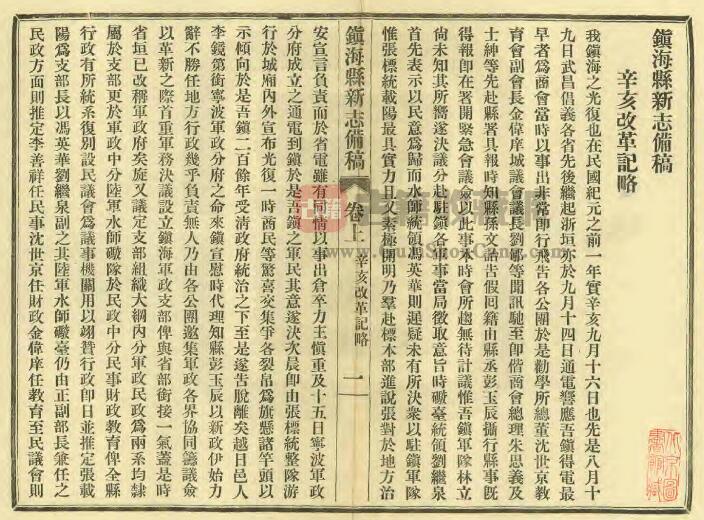 鎮海縣新志備稿
辛亥改革記略
我鎮海之光復也在民國紀元之前一年實辛亥九月十六日也先是八月十
九日武昌倡義各省先後繼起浙垣亦於九月十四日通電響應吾鎮得電最
早者爲商會當時以事出非常即行飛告各公團於是勸學所總董沈世京教
育會副會長金偉庠城議會議長劉郇等聞訊馳至卽偕商會總理朱思義及
士紳等先赴縣署具報時知縣孫文詒告假回籍由縣丞彭玉辰攝行縣事旣
得報卽在署開緊急會議僉以此事末時會所趨無待計議惟吾鎮軍隊林立
尙未知其所嚮遂決議分赴駐鎮各軍事當局徵取意旨時礮臺統領劉繼泉
首先表示以民意爲歸而水師統領馮英華則遲疑未有所決衆以駐鎮軍隊
惟張標統載陽最具實力且又素極開明乃羣赴標本部進說張對於地方治
鎮海縣新志備稿 卷上 辛亥改革記略 一
安宣言負責而於省電雖有同情以事出倉卒力主愼重及十五日寧波軍政
分府成立之通電到鎮於是吾鎮之軍民其意遂決次晨卽由張標統整隊游
行於城廂內外宣布光復一時商民等驚喜交集爭各裂帛爲旗懸諸竿頭以
示傾向於是吾鎮二百餘年受清政府統治之下至是遂告脫離矣越日邑人
李鏡第銜寧波軍政分府之命來鎮宣慰時代理知縣彭玉辰以新政伊始力
辭不勝任地方行政幾乎負責無人乃由各公團邀集軍政各界協同籌議僉
以革新之際首重軍務決議設立鎮海軍政支部俾與省部銜接一氣蓋是時
省垣已改稱軍政府矣旋又議定支部組織大綱內分軍政民政爲兩系均隸
屬於支部更於軍政中分陸軍水師礮隊於民政中分民事財政敎育俾全縣
行政有所統系復別設民議會爲議事機關用以翊贊行政卽日並推定張載
陽爲支部長以馮英華劉繼泉副之其陸軍水師礮臺仍由正副部長兼任之
民政方面則推定李善祥任民事沈世京任財政金偉庠任敎育至民議會則